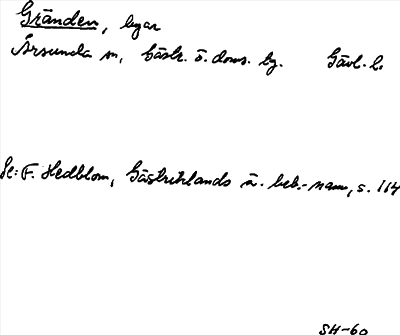 Gränden, byar
Årsunda sn, Gästr. ö. doms. lg. Gävl. l.
Se: F. Hedblom, Gästriklands ä. beb.-namn, s. 114
SH-60